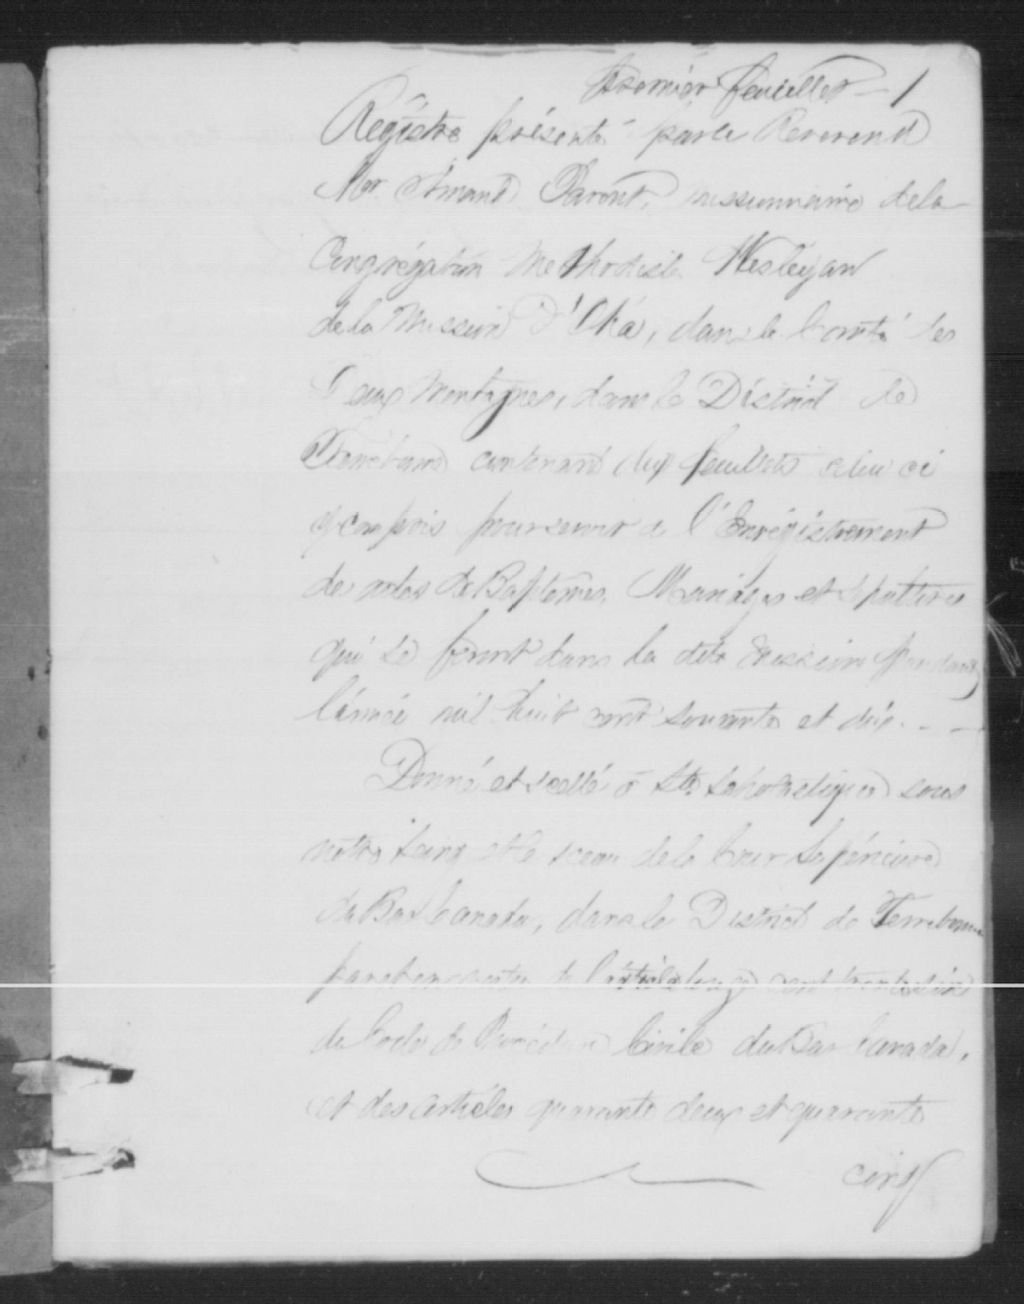 Premier feuillet — 1
Régistre présenté par le Reverend
Mr. Amand Parent, missionnaire de la
Congrégation Methodiste Wesleyan
de la Mission d'Oka, dans le Comté des
Deux Montagnes, dans le District de
Terrebonne contenant dix feuillets celui ci
y compris pour servir a l'Enrégistrement
des actes de Baptêmes, Mariages et Sépultures
qui se feront dans la dite Mission pendant
l'année mil huit cent soixante et dix. - -
Donné et scellé à Ste Scholastique sous
notre seing et le sceau de la Cour Supérieure
du Bas Canada, dans le District de Terrebonne
de l'article cent
du Code de Procédure Civile du Bas Canada,
et des articles quarante deux et quarante
cinq